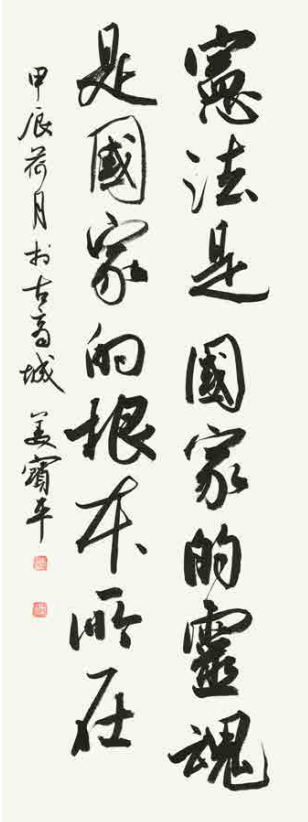 憲法是國家的靈魂
是國家的根本所在
甲辰荷月於古商城 姜寶平